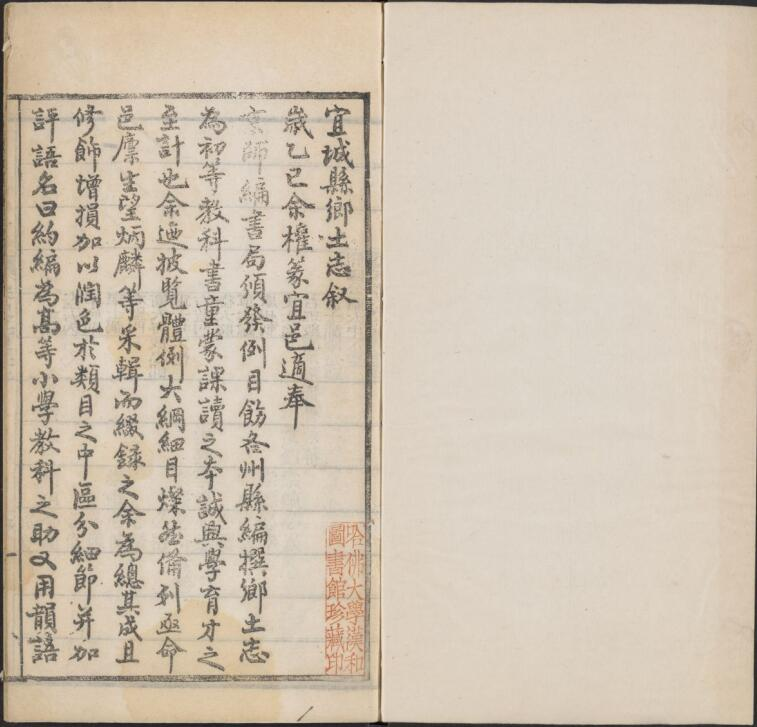 宜城縣鄉土志叙
歲乙巳余權篆宜邑適奉
京師編書局頒發例目飭各州縣編撰鄉土志
為初等教科書童蒙課讀之本誠興學育才之
至計也余迺披覽體例大綱細目燦然備列亟命
邑廩生望炳麟等采輯而綴錄之余為總其成且
修飾增損加以潤色於類目之中區分細節并加
評語名曰約編為高等小學教科之助又用韻語
哈佛大學漢和
圖書館珍藏印